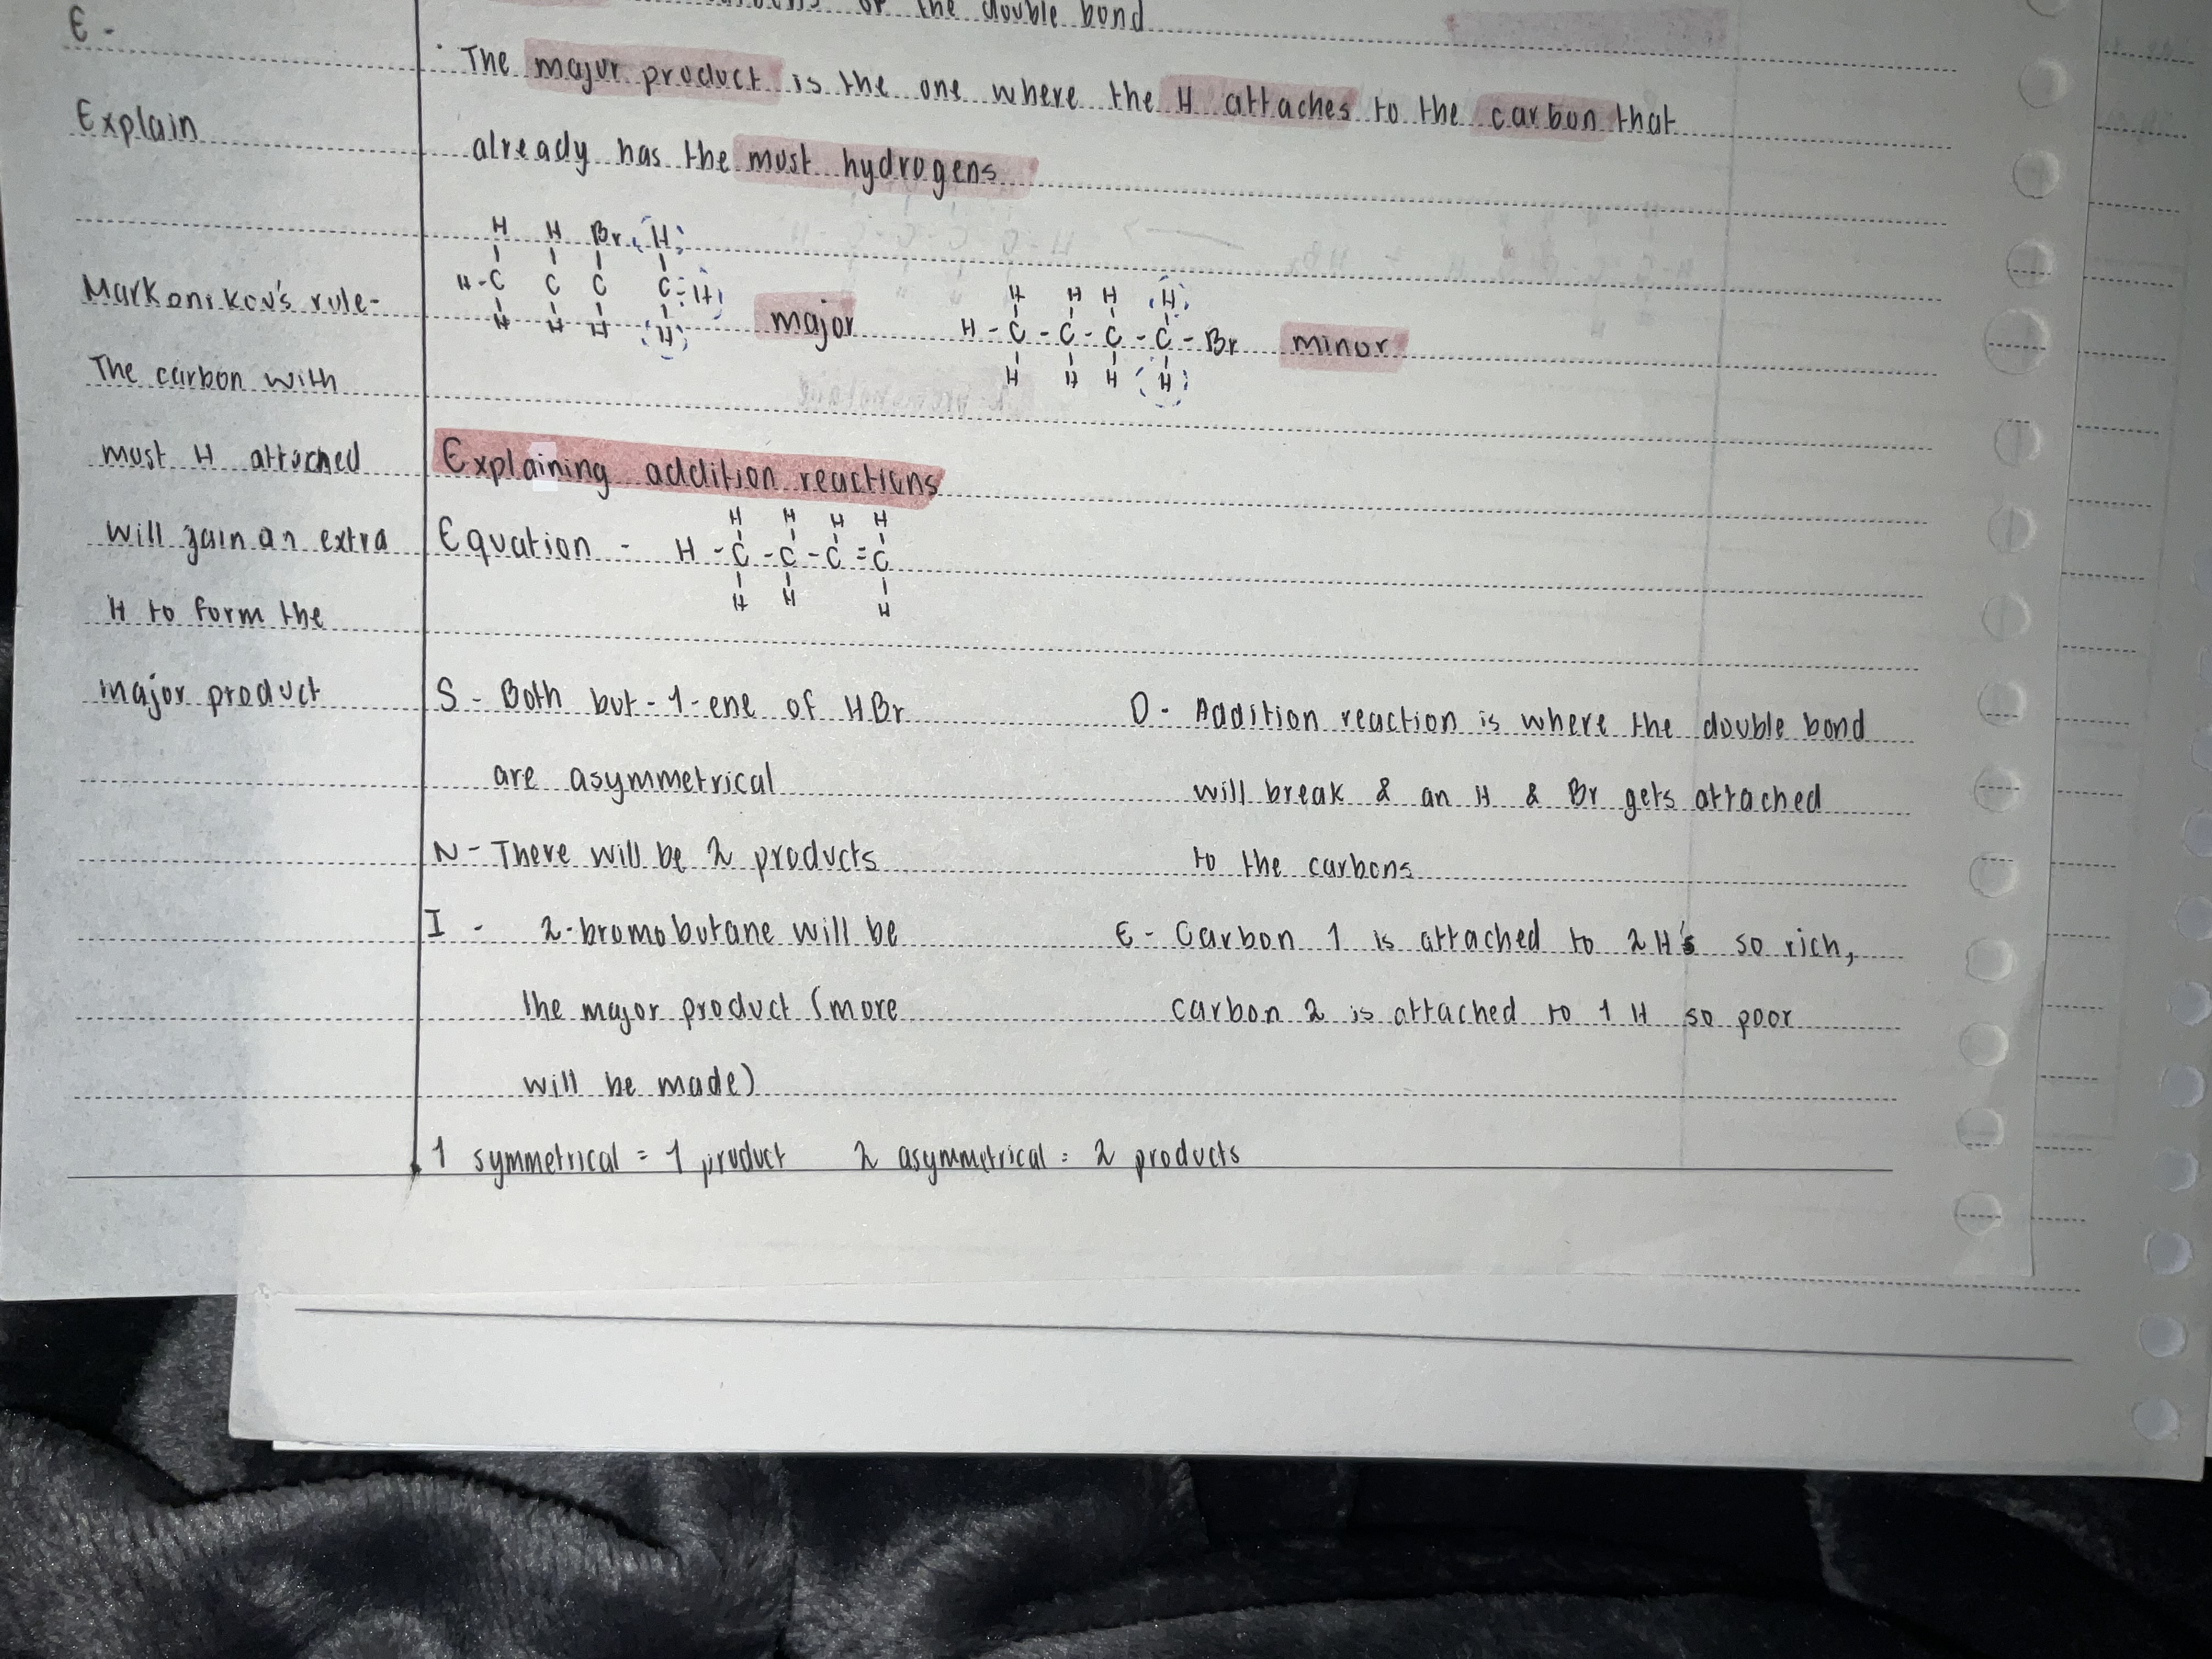 of the double bond
E -
· The major product is the one where the H attaches to the carbon that
Explain
already has the most hydrogens
H H Br H
H-C C C C-H
H H H H
major
H H H H
H-C-C-C-C-Br
H H H H
minor
Markonikov's rule-
The carbon with
most H attached
will gain an extra
H to form the
major product
Explaining addition reactions
Equation -
H H H H
H-C-C-C=C
H H H
S - Both but-1-ene of HBr
are asymmetrical
N - There will be 2 products
I - 2-bromobutane will be
the major product (more
will be made)
D - Addition reaction is where the double bond
will break & an H & Br gets attached
to the carbons
E - Carbon 1 is attached to 2H's so rich,
carbon 2 is attached to 1 H so poor
1 symmetrical = 1 product 2 asymmetrical = 2 products